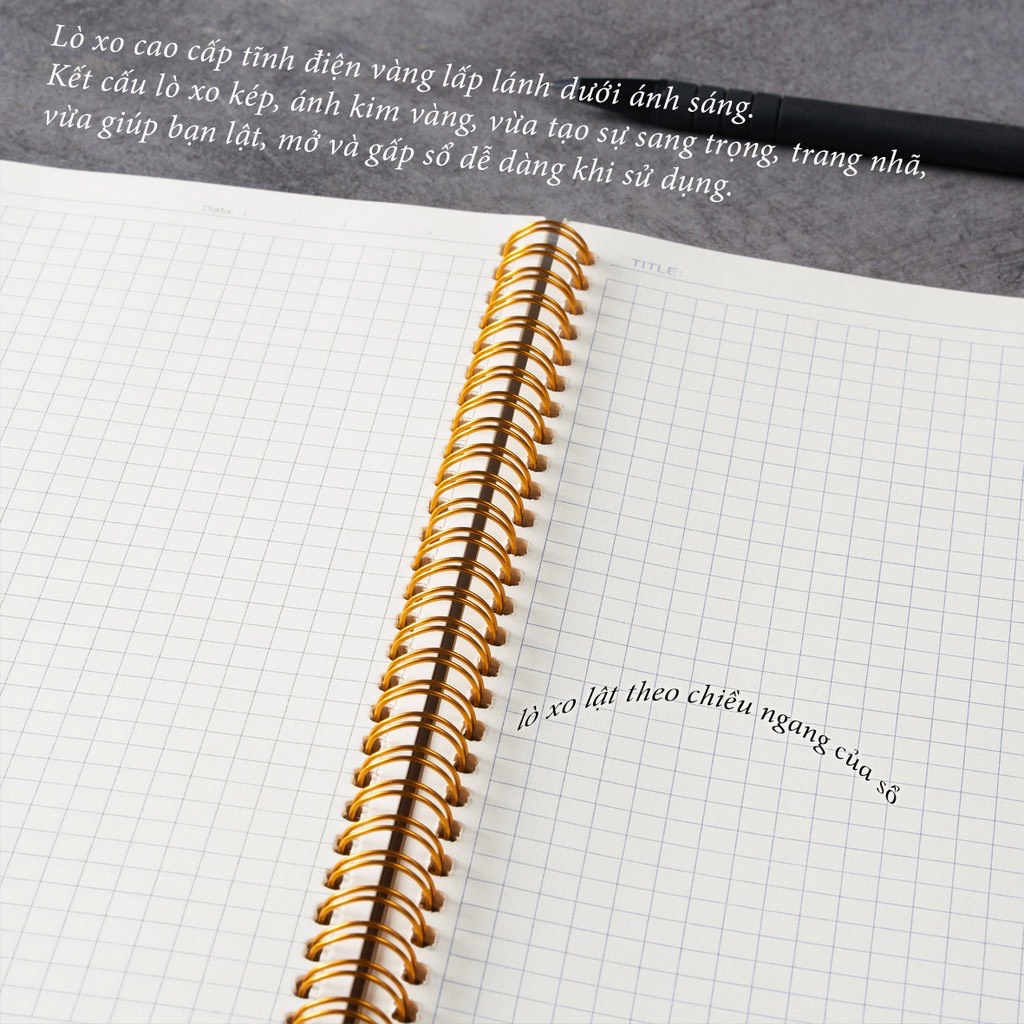 Lò xo cao cấp tĩnh điện vàng lấp lánh dưới ánh sáng.
Kết cấu lò xo kép, ánh kim vàng, vừa tạo sự sang trọng, trang nhã,
vừa giúp bạn lật, mở và gấp sổ dễ dàng khi sử dụng.
Data: :
TITLE:
lò xo lật theo chiều ngang của sổ